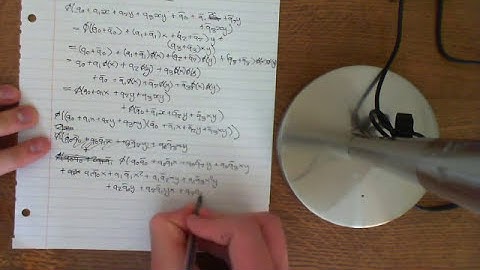 ϕ(q₀ + q₁x + q₂y + q₃xy + q̄₀ + q̄₁x + q̄₂y + q̄₃xy)
= ϕ((q₀ + q̄₀) + (q₁ + q̄₁)x + (q₂ + q̄₂)y + (q₃ + q̄₃)xy)
= (q₀ + q̄₀) + (q₁ + q̄₁)ϕ(x) + (q₂ + q̄₂)ϕ(y) + (q₃ + q̄₃)ϕ(x)ϕ(y)
= q₀ + q₁ϕ(x) + q₂ϕ(y) + q₃ϕ(x)ϕ(y)
+ q̄₀ + q̄₁ϕ(x) + q̄₂ϕ(y) + q̄₃ϕ(x)ϕ(y)
= ϕ(q₀ + q₁x + q₂y + q₃xy)
+ ϕ(q̄₀ + q̄₁x + q̄₂y + q̄₃xy)
ϕ((q₀ + q₁x + q₂y + q₃xy)(q̄₀ + q̄₁x + q̄₂y + q̄₃xy))
ϕ(q₀q̄₀ + q₀q̄₁x + q₀q̄₂y + q₀q̄₃xy
+ q₁q̄₀x + q₁q̄₁x² + q₁q̄₂xy + q₁q̄₃x²y
+ q₂q̄₀y + q₂q̄₁yx +